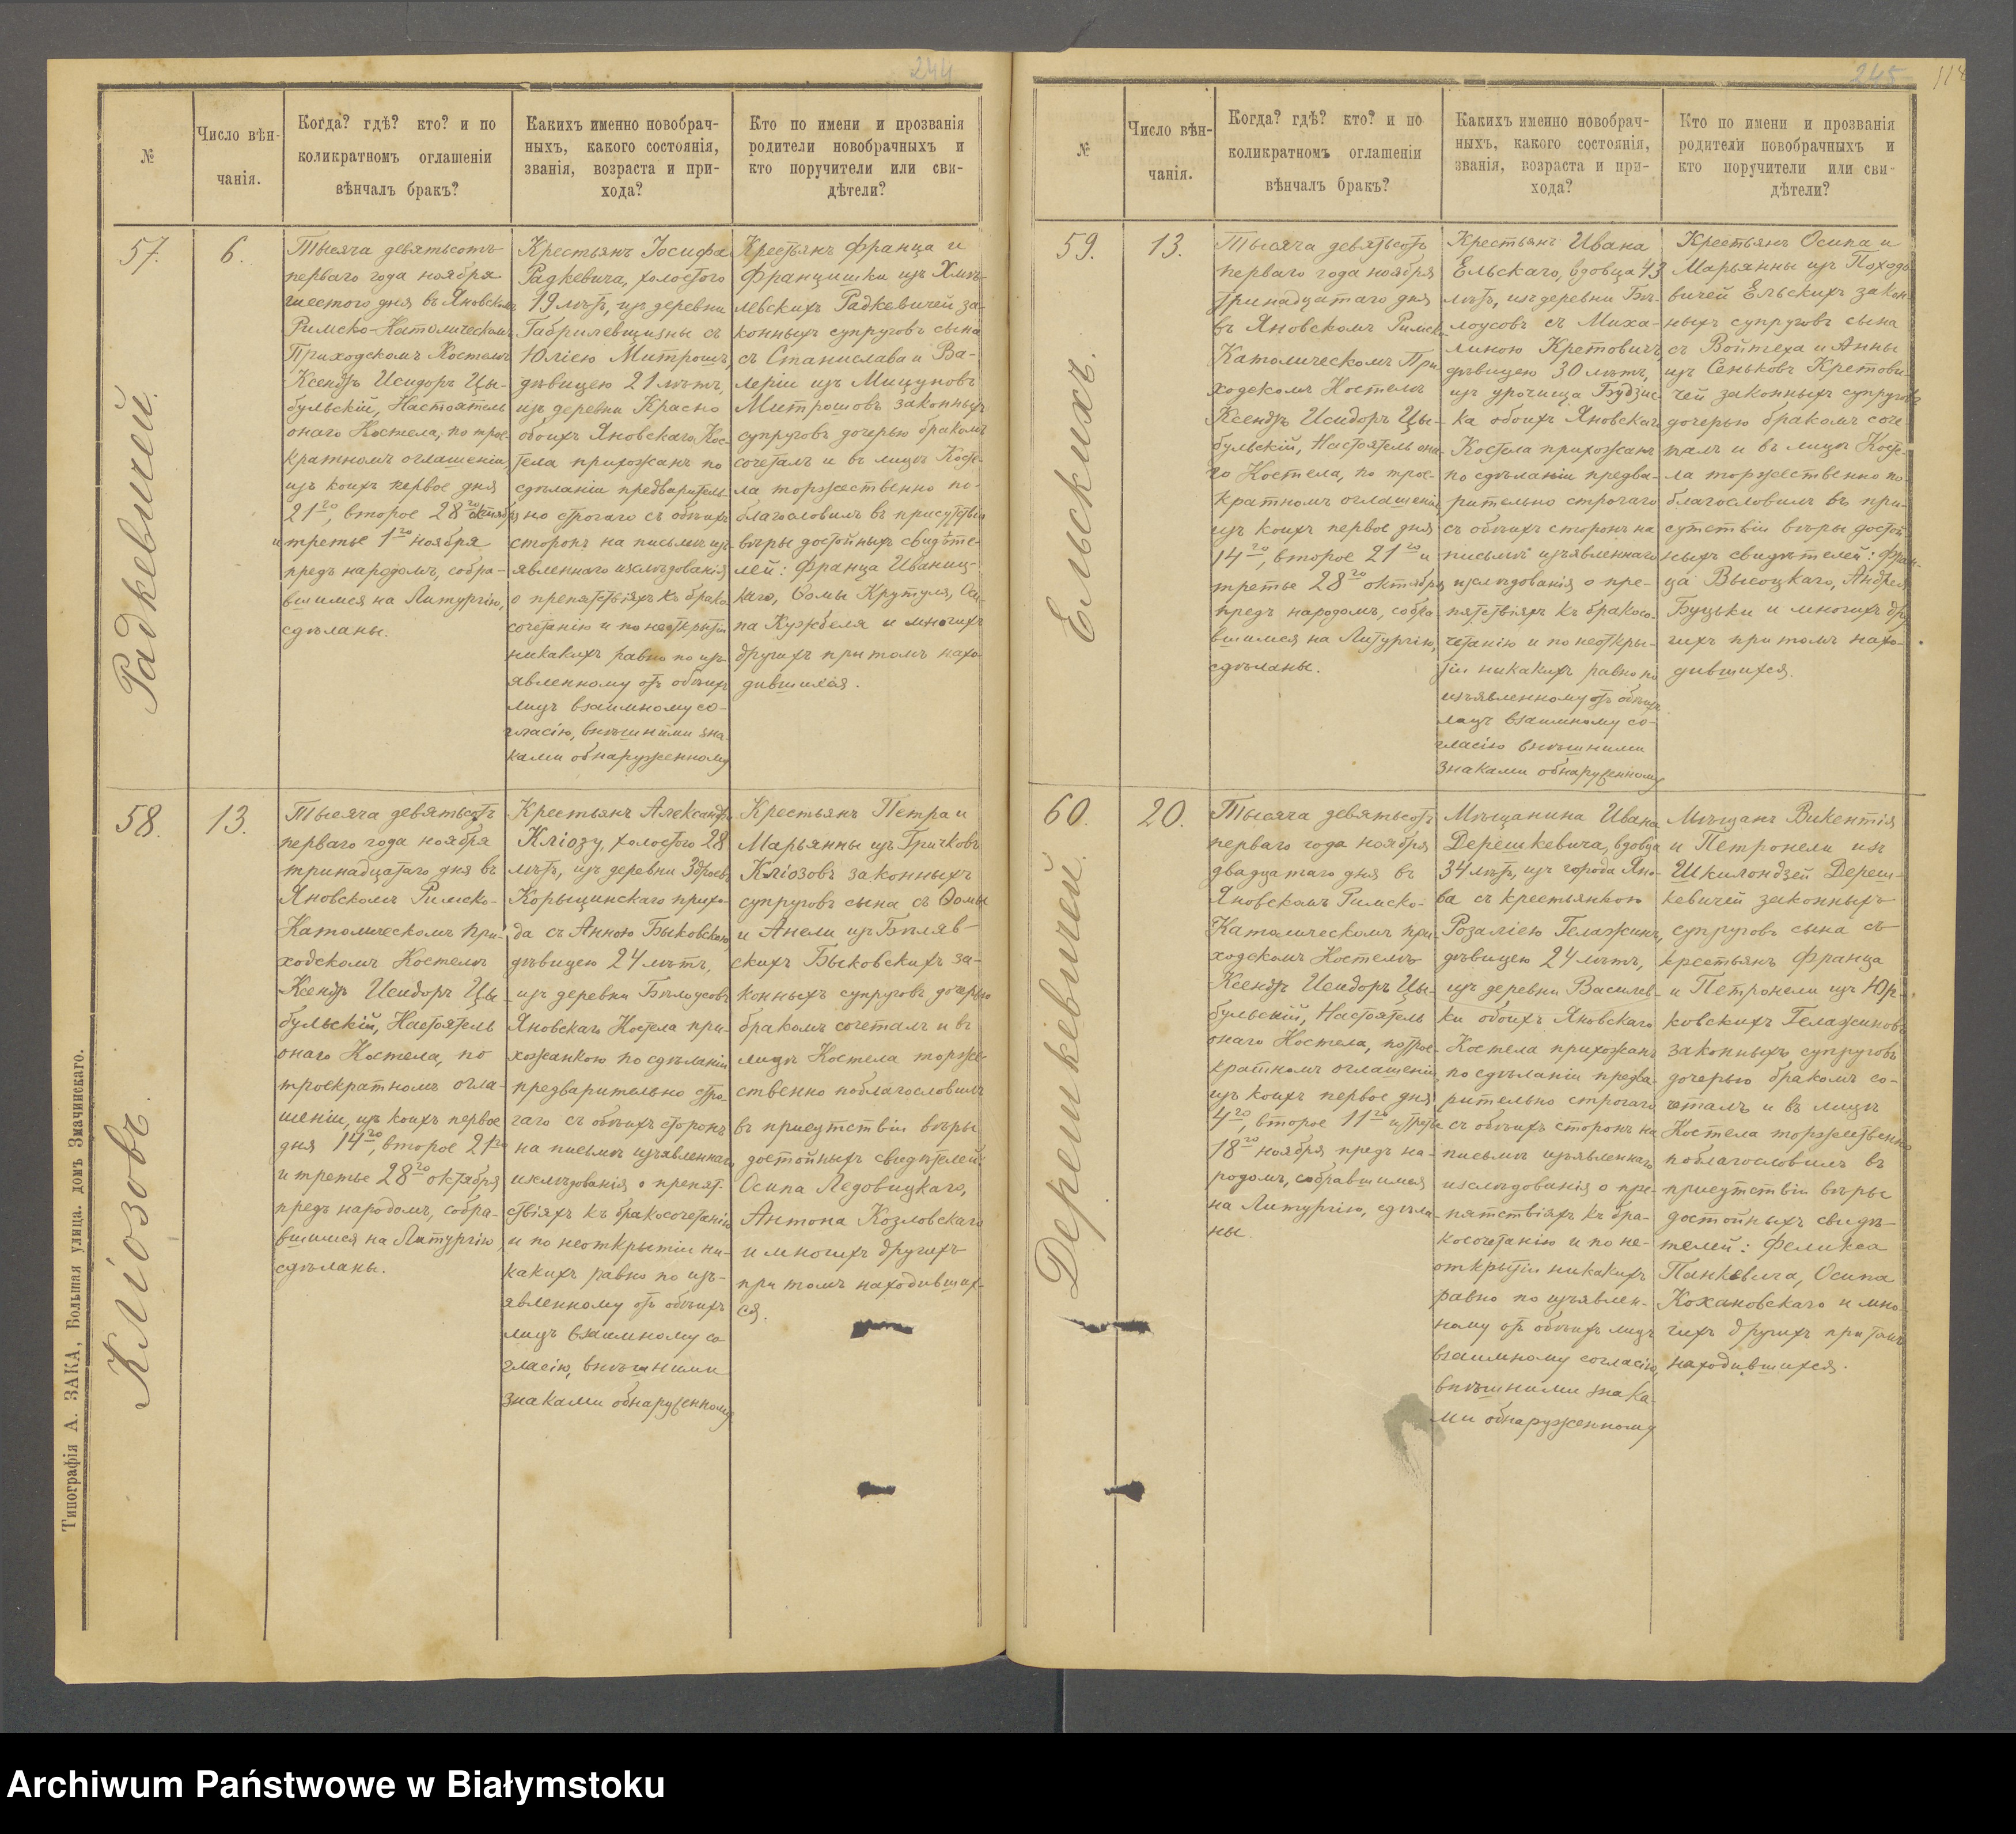 244
№
Число вѣн-
чанія.
Когда? гдѣ? кто? и по
коликратномъ оглашеніи
вѣнчалъ бракъ?
Какихъ именно новобрач-
ныхъ, какого состоянія,
званія, возраста и при-
хода?
Кто по имени и прозванія
родители новобрачныхъ и
кто поручители или сви-
дѣтели?
57.
Радкевичей.
6.
Тысяча девятьсотъ
перваго года ноября
шестого дня въ Яновскомъ
Римско-Католическомъ
Приходскомъ Костелѣ
Ксендзъ Исидоръ Цы-
бульскій, Настоятель
онаго Костела, по трое-
кратномъ оглашеніи,
изъ коихъ первое дня
21го, второе 28го октября
и третье 1го ноября
предъ народомъ, собра-
вшимся на Литургію,
сдѣланы.
Крестьянъ Іосифа
Радкевича, холостого
19 лѣтъ, изъ деревни
Габрилевщизны съ
Юліею Митрошъ,
дѣвицею 21 лѣтъ,
изъ деревни Красно
обоихъ Яновскаго Кос-
тела прихожанъ по
сдѣланіи предваритель-
но строгаго съ обѣихъ
сторонъ на письмѣ изъ-
явленнаго изслѣдованія
о препятствіяхъ къ брако-
сочетанію и по неоткрытіи
никакихъ равно по изъ-
явленному отъ обѣихъ
лицъ взаимному со-
гласію, внѣшними зна-
ками обнаруженному
Крестьянъ Франца и
Францишки изъ Хмѣ-
левскихъ Радкевичей за-
конныхъ супруговъ сына
съ Станислава и Ва-
леріи изъ Мицуновъ
Митрошовъ законныхъ
супруговъ дочерью бракомъ
сочеталъ и въ лицѣ Косте-
ла торжественно по-
благословилъ въ присутствіи
вѣры достойныхъ свидѣте-
лей: Франца Иваниц-
каго, Ѳомы Крутуля, Оси-
па Кужбеля и многихъ
другихъ при томъ нахо-
дившихся.
58.
Кліозовъ.
13.
Тысяча девятьсотъ
перваго года ноября
тринадцатаго дня въ
Яновскомъ Римско-
Католическомъ При-
ходскомъ Костелѣ
Ксендзъ Исидоръ Цы-
бульскій, Настоятель
онаго Костела, по
троекратномъ огла-
шеніи, изъ коихъ первое
дня 14го, второе 21го
и третье 28го октября
предъ народомъ, собра-
вшимся на Литургію
сдѣланы.
Крестьянъ Александра
Кліозу, холостого 28
лѣтъ, изъ деревни Здроевъ
Корыцинскаго прихо-
да съ Анною Быковскою,
дѣвицею 24 лѣтъ,
изъ деревни Бѣлоусовъ
Яновскаго Костела при-
хожанкою по сдѣланіи
предварительно стро-
гаго съ обѣихъ сторонъ
на письмѣ изъявленнаго
изслѣдованія о препят-
ствіяхъ къ бракосочетанію
и по неоткрытіи ни-
какихъ равно по изъ-
явленному отъ обѣихъ
лицъ взаимному со-
гласію, внѣшними
знаками обнаруженному
Крестьянъ Петра и
Марьянны изъ Гричковъ
Кліозовъ законныхъ
супруговъ сына съ Ѳомы
и Анели изъ Бѣляв-
скихъ Быковскихъ за-
конныхъ супруговъ дочерью
бракомъ сочеталъ и въ
лицѣ Костела торже-
ственно поблагословилъ
въ присутствіи вѣры
достойныхъ свидѣтелей:
Осипа Ледовицкаго,
Антона Козловскаго
и многихъ другихъ
при томъ находивших-
ся.
Типографія А. ЗАКА, Большая улица. домъ Змачинскаго.
245
118
№
Число вѣн-
чанія.
Когда? гдѣ? кто? и по
коликратномъ оглашеніи
вѣнчалъ бракъ?
Какихъ именно новобрач-
ныхъ, какого состоянія,
званія, возраста и при-
хода?
Кто по имени и прозванія
родители новобрачныхъ и
кто поручители или сви-
дѣтели?
59.
Ельскихъ.
13.
Тысяча девятьсотъ
перваго года ноября
тринадцатаго дня
въ Яновскомъ Римско-
Католическомъ При-
ходскомъ Костелѣ
Ксендзъ Исидоръ Цы-
бульскій, Настоятель она-
го Костела, по трое-
кратномъ оглашеніи,
изъ коихъ первое дня
14го, второе 21го и
третье 28го октября
предъ народомъ, собра-
вшимся на Литургію,
сдѣланы.
Крестьянъ Ивана
Ельскаго, вдовца 43
лѣтъ, изъ деревни Бѣ-
лоусовъ съ Миха-
линою Кретовичъ,
дѣвицею 30 лѣтъ,
изъ урочища Будзис-
ка обоихъ Яновскаго
Костела прихожанъ
по сдѣланіи предва-
рительно строгаго
съ обѣихъ сторонъ на
письмѣ изъявленнаго
изслѣдованія о пре-
пятствіяхъ къ бракосо-
четанію и по неоткры-
тіи никакихъ равно по
изъявленному отъ обѣихъ
лицъ взаимному со-
гласію внѣшними
знаками обнаруженному
Крестьянъ Осипа и
Марьянны изъ Походо-
вичей Ельскихъ закон-
ныхъ супруговъ сына
съ Войтеха и Анны
изъ Сеньковъ Кретови-
чей законныхъ супруговъ
дочерью бракомъ соче-
талъ и въ лицѣ Косте-
ла торжественно по-
благословилъ въ при-
сутствіи вѣры достой-
ныхъ свидѣтелей: Фран-
ца Высоцкаго, Андрея
Буцьки и многихъ дру-
гихъ при томъ нахо-
дившихся.
60.
Дерешкевичей.
20.
Тысяча девятьсотъ
перваго года ноября
двадцатаго дня въ
Яновскомъ Римско-
Католическомъ При-
ходскомъ Костелѣ
Ксендзъ Исидоръ Цы-
бульскій, Настоятель
онаго Костела, по трое-
кратномъ оглашеніи,
изъ коихъ первое дня
4го, второе 11го и третье
18го ноября предъ на-
родомъ, собравшимся
на Литургію, сдѣла-
ны.
Мѣщанина Ивана
Дерешкевича, вдовца
34 лѣтъ, изъ города Яно-
ва съ крестьянкою
Розаліею Гелажинъ,
дѣвицею 24 лѣтъ,
изъ деревни Василев-
ки обоихъ Яновскаго
Костела прихожанъ
по сдѣланіи предва-
рительно строгаго
съ обѣихъ сторонъ на
письмѣ изъявленнаго
изслѣдованія о пре-
пятствіяхъ къ бра-
косочетанію и по не-
открытіи никакихъ
равно по изъявлен-
ному отъ обѣихъ лицъ
взаимному согласію,
внѣшними знака-
ми обнаруженному
Мѣщанъ Викентія
и Петронели изъ
Шкилондзей Дереш-
кевичей законныхъ
супруговъ сына съ
крестьянъ Франца
и Петронели изъ Юр-
ковскихъ Гелажиновъ
законныхъ супруговъ
дочерью бракомъ со-
четалъ и въ лицѣ
Костела торжественно
поблагословилъ въ
присутствіи вѣры
достойныхъ свидѣ-
телей: Феликса
Панкевича, Осипа
Кохановскаго и мно-
гихъ другихъ при томъ
находившихся.
Archiwum Państwowe w Białymstoku